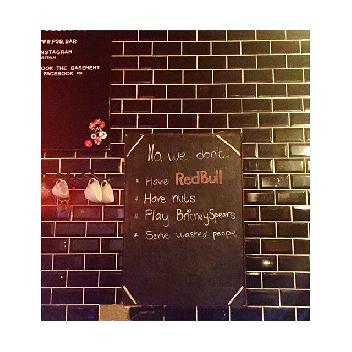 INSTAGRAM
BOOK THE BASEMENT
FACEBOOK
No, we don't..
* Have RedBull
* Have nuts
* Play BritneySpears
* Serve wasted people